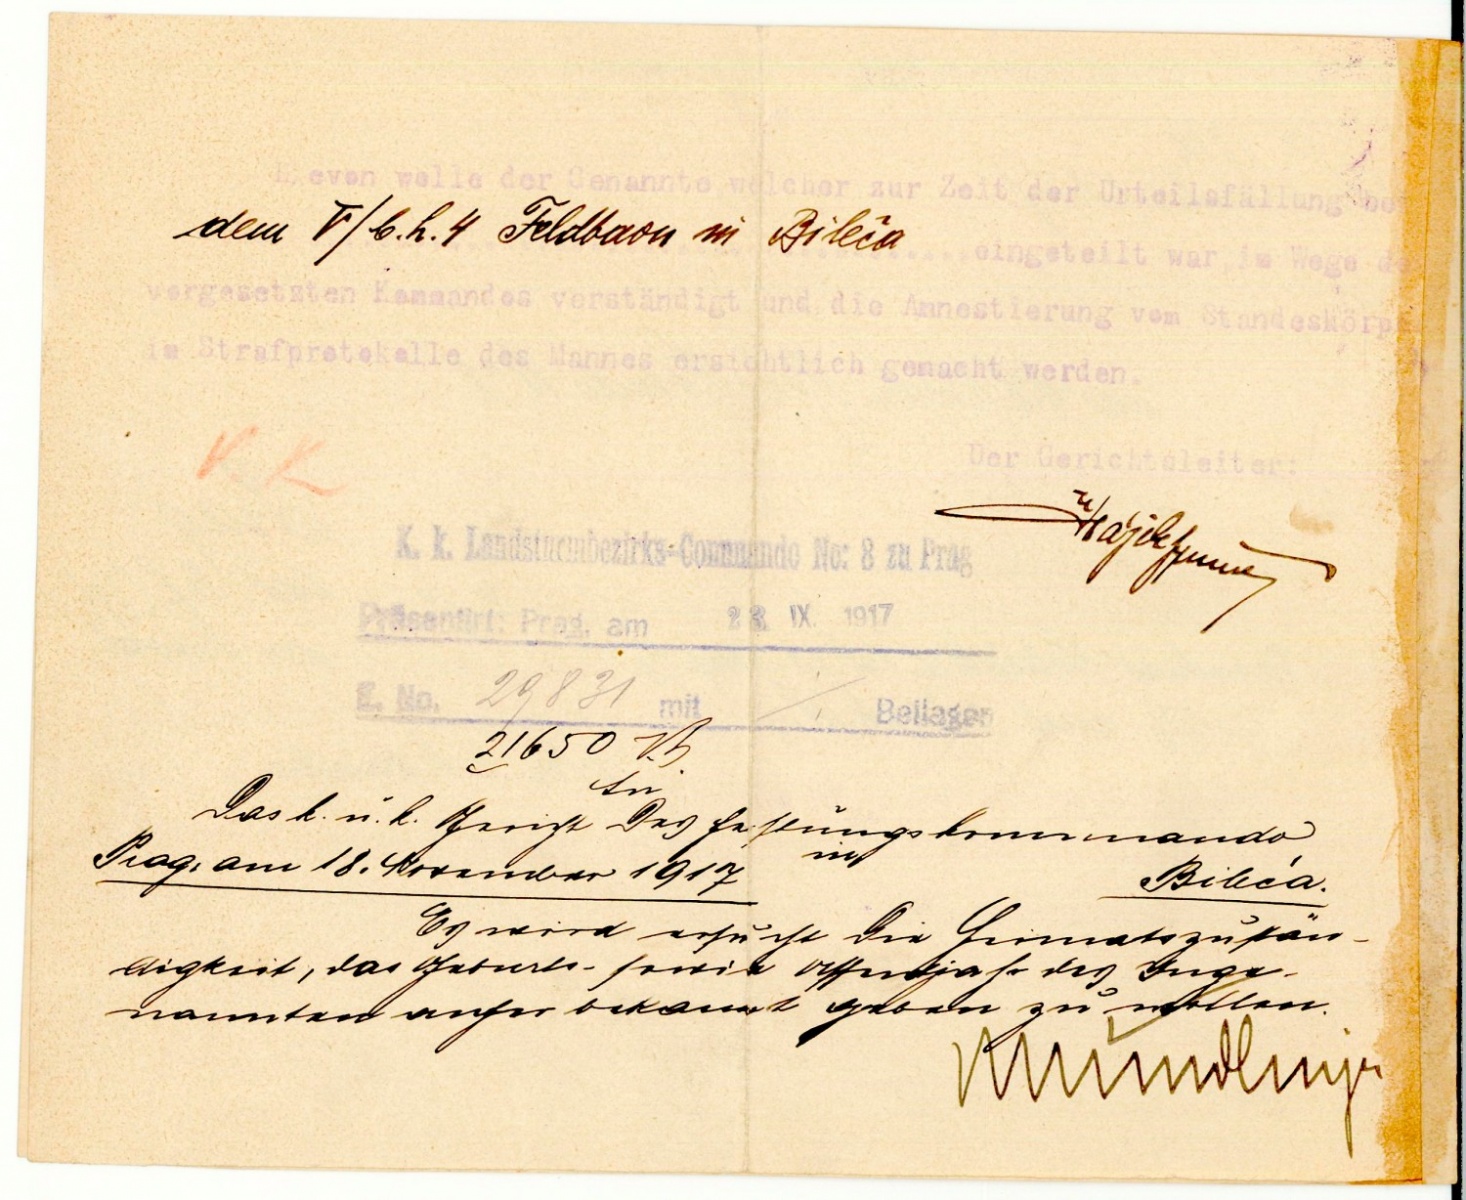 Hievon wolle der Genannte welcher zur Zeit der Urteilsfällung be
dem V/b.h.4 Feldbaon in Bileća
eingeteilt war im Wege de
vorgesetzten Kommandos verständigt und die Amnestierung vom Standeskörp
im Strafprotokolle des Mannes ersichtlich gemacht werden.
Der Gerichtsleiter:
K. k. Landsturmbezirks-Commando No: 8 zu Prag
Präsentirt: Prag, am IX. 1917
E. No. 29831 mit ./. Beilagen
21650
An
Das k. u. k. Gericht des Festungskommando
in
Prag, am 18. November 1917 Bileća.
Es wird ersucht die Heimatszustän-
digkeit, das Geburts- sowie Assentjahr des Inge-
nannten anher bekannt geben zu wollen.